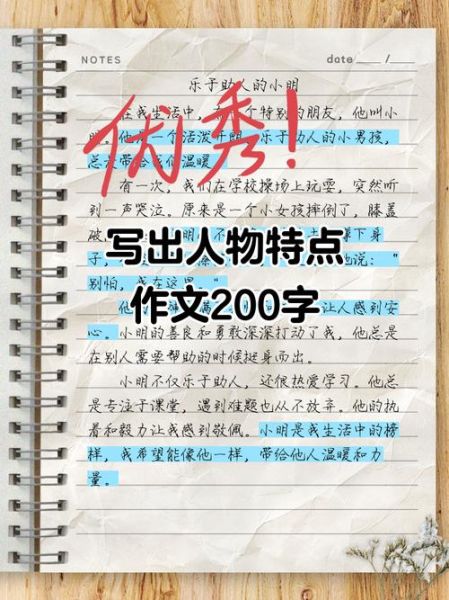 NOTES
date ____ /____
乐于助人的小明
在我生活中,特别的朋友,他叫小
明。他一个活泼开朗、乐于助人的小男孩,
总带给温暖。
优秀!
有一次,我们在学校操场上玩耍,突然听
到一声哭泣。原来是一个小女孩摔倒了,膝盖
破下身
写出人物特点
子,他说:“
别怕,我在这里。”
作文200字
他满让人感到安
心。小明的善良和勇敢深深打动了我,他总是
在别人需要帮助的时候挺身而出。
小明不仅乐于助人,还很热爱学习。他总
是专注于课堂,遇到难题也从不放弃。他的执
着和毅力让我感到敬佩。小明是我生活中的榜
样,我希望能像他一样,带给他人温暖和力
量。